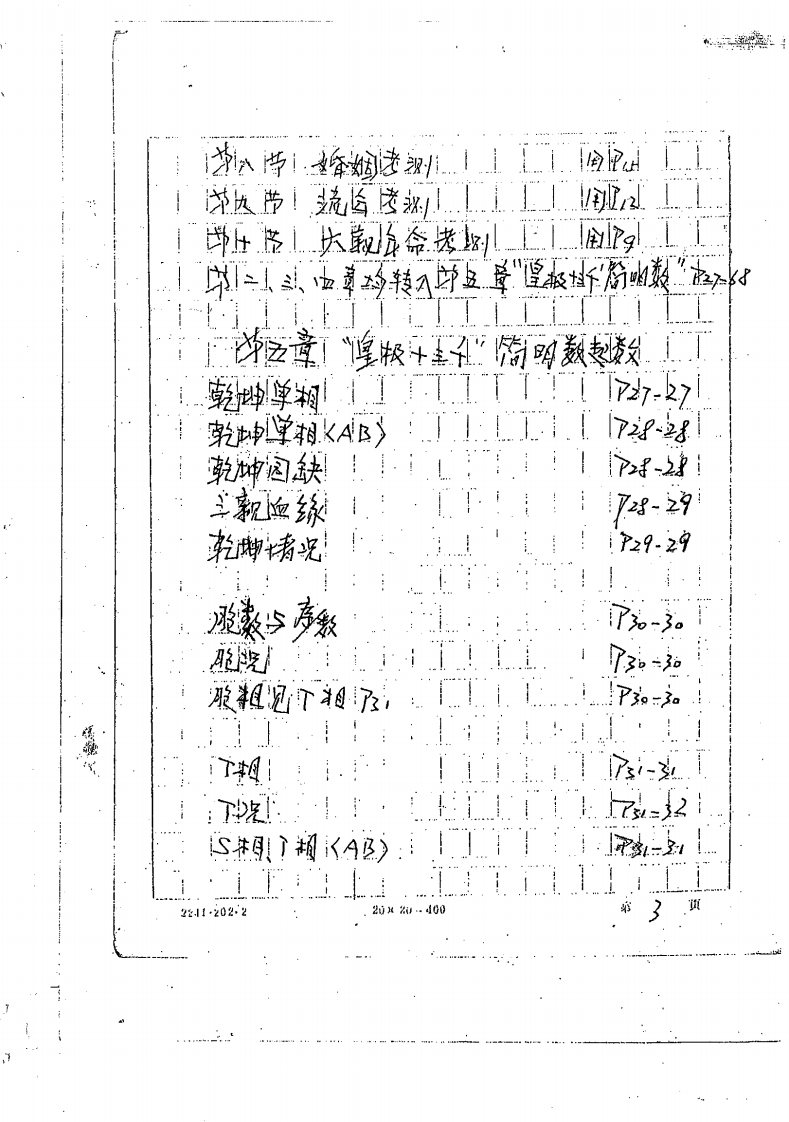 第八节 婚姻考测 用P15
第九节 流年考测 用P12
第十节 六亲年命考测 用P9
第二、三、四章均转入第五章“皇极十三千简明数”P27-68
第五章“皇极十三千”简明数起数
乾坤单相 P27-27
乾坤单相〈AB〉 P28-28
乾坤囗缺 P28-28
三親血缘 P28-29
乾坤情况 P29-29
胞数与序数 P30-30
胞况 P30-30
胞相见T相P31 P30-30
T相 P31-31
T况 P31-32
S相T相〈AB〉 P31-31
2211·202·2 20×20=400 第 3 页